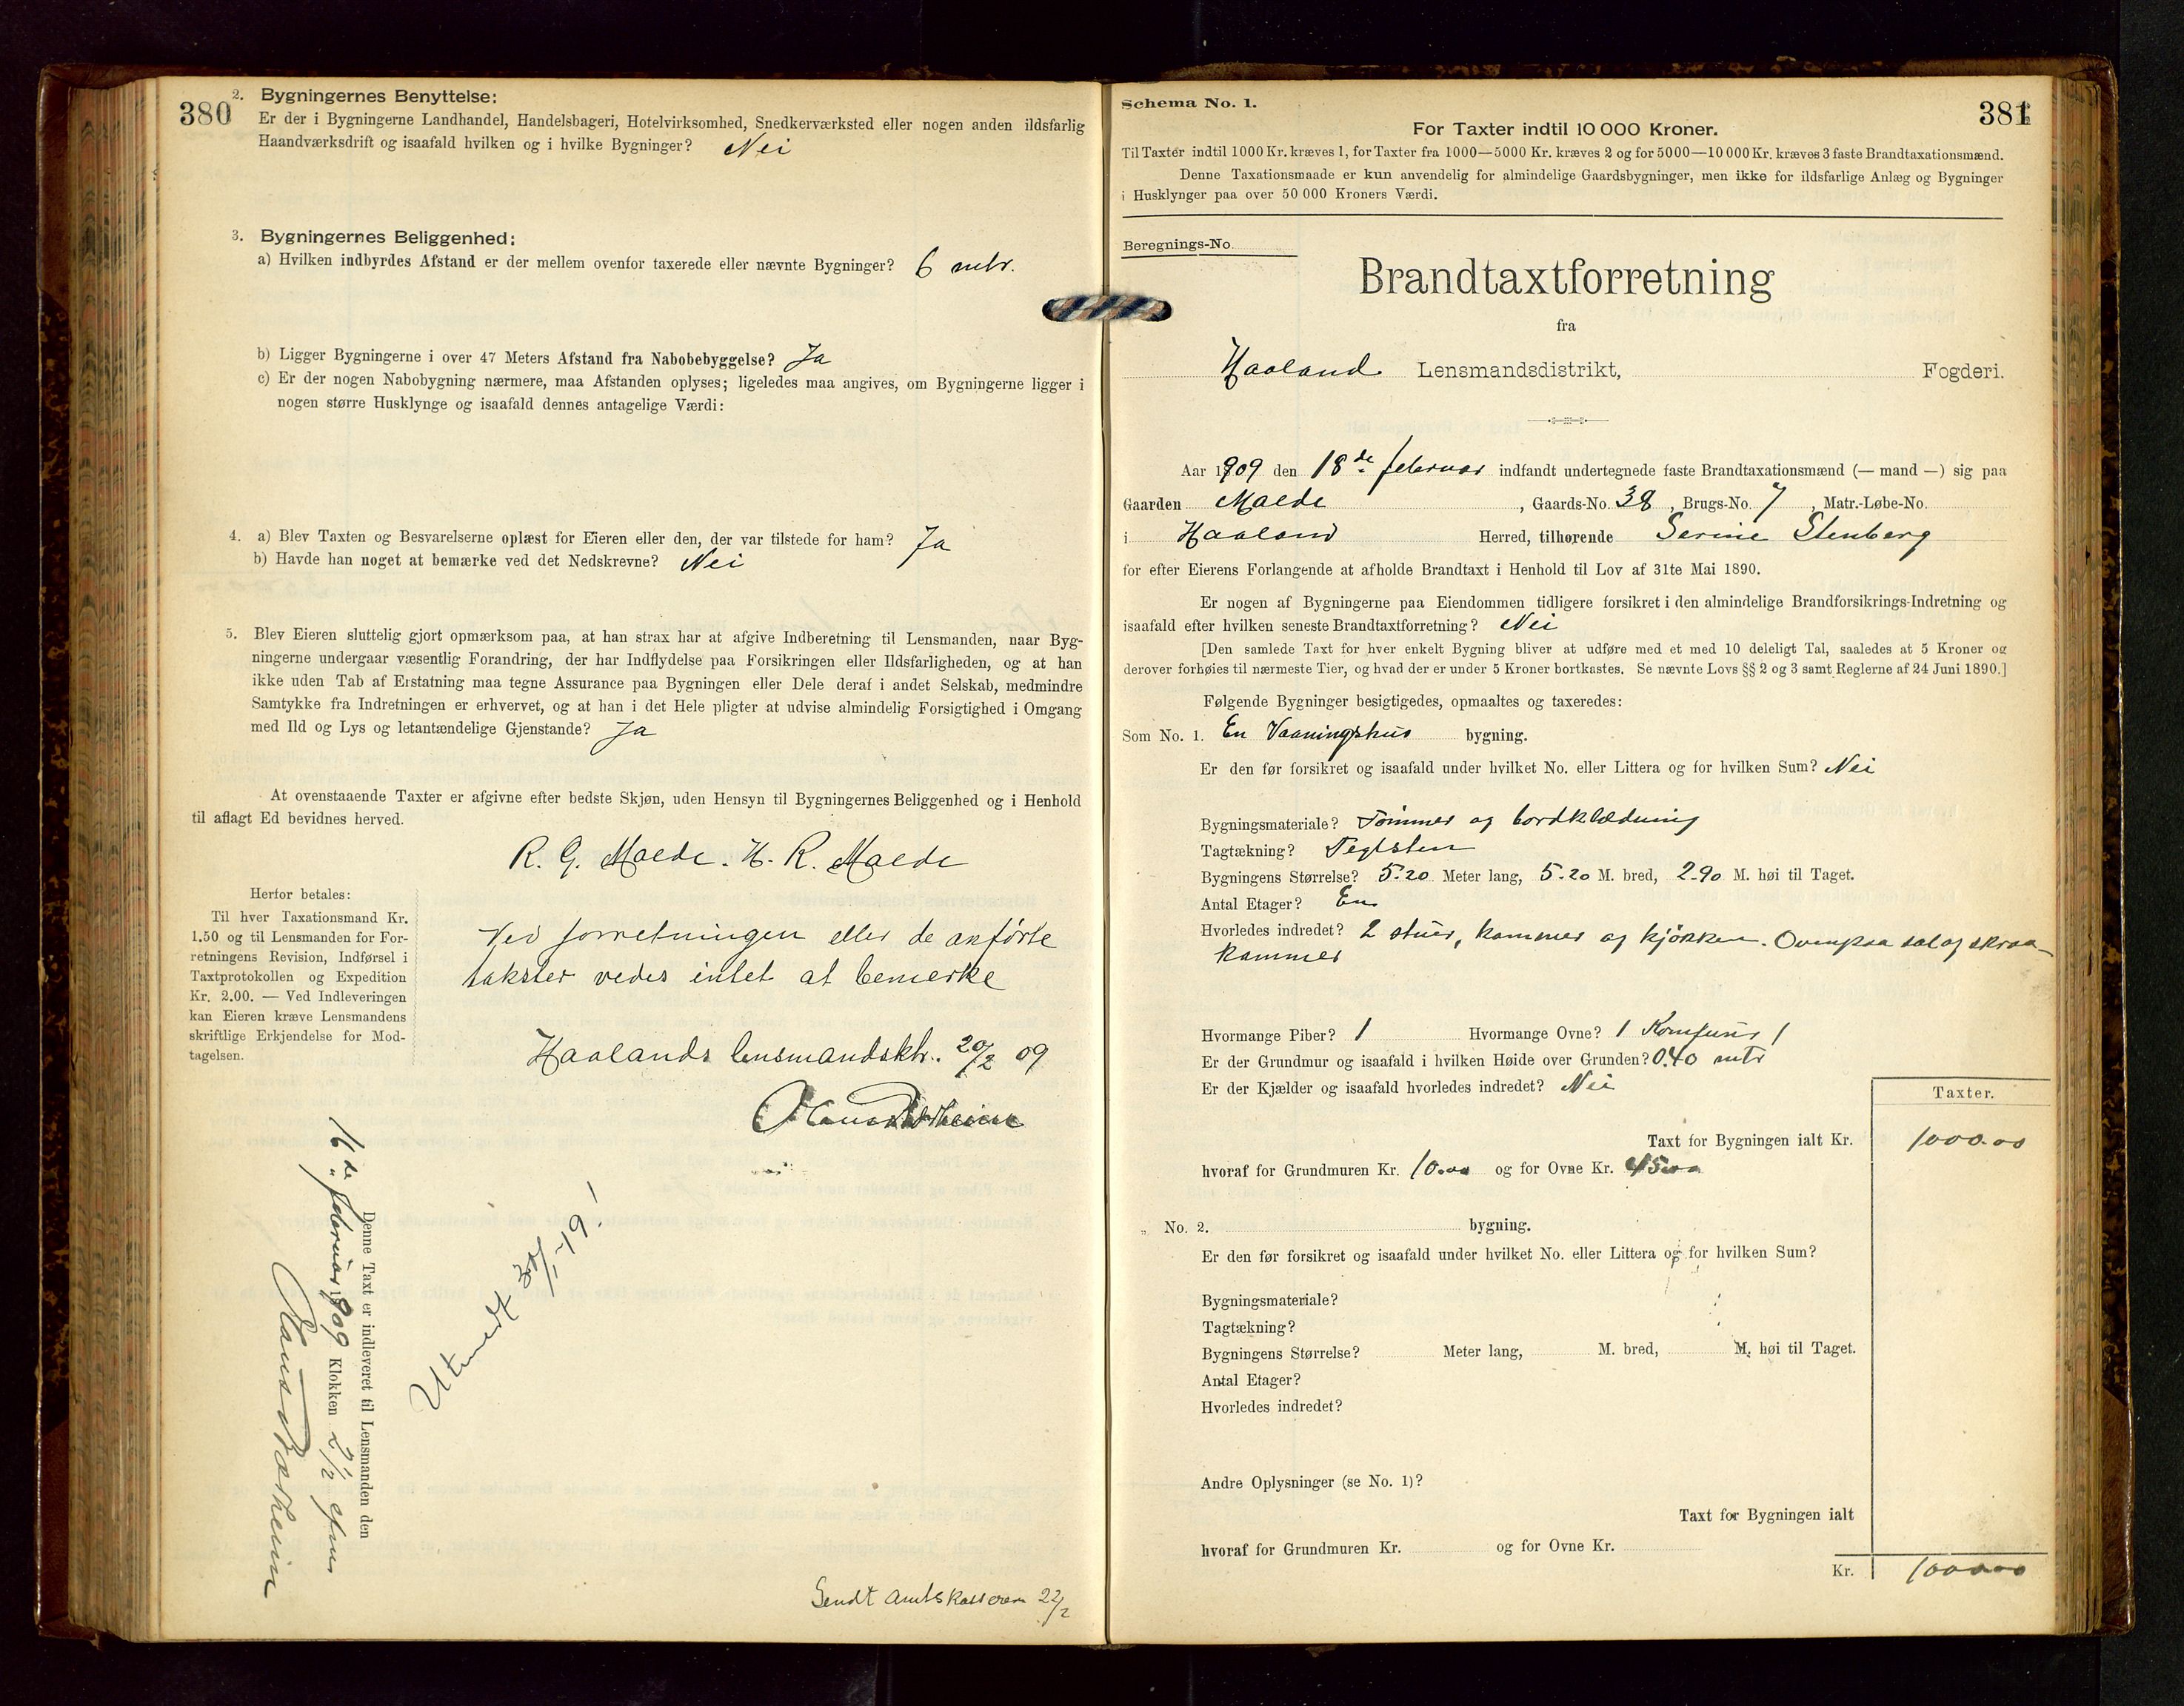 380
2. Bygningernes Benyttelse:
Er der i Bygningerne Landhandel, Handelsbageri, Hotelvirksomhed, Snedkerværksted eller nogen anden ildsfarlig
Haandværksdrift og isaafald hvilken og i hvilke Bygninger? Nei
3. Bygningernes Beliggenhed:
a) Hvilken indbyrdes Afstand er der mellem ovenfor taxerede eller nævnte Bygninger? 6 mtr.
b) Ligger Bygningerne i over 47 Meters Afstand fra Nabobebyggelse? Ja
c) Er der nogen Nabobygning nærmere, maa Afstanden oplyses; ligeledes maa angives, om Bygningerne ligger i
nogen større Husklynge og isaafald dennes antagelige Værdi:
4. a) Blev Taxten og Besvarelserne oplæst for Eieren eller den, der var tilstede for ham? Ja
b) Havde han noget at bemærke ved det Nedskrevne? Nei
5. Blev Eieren sluttelig gjort opmærksom paa, at han strax har at afgive Indberetning til Lensmanden, naar Byg-
ningerne undergaar væsentlig Forandring, der har Indflydelse paa Forsikringen eller Ildsfarligheden, og at han
ikke uden Tab af Erstatning maa tegne Assurance paa Bygningen eller Dele deraf i andet Selskab, medmindre
Samtykke fra Indretningen er erhvervet, og at han i det Hele pligter at udvise almindelig Forsigtighed i Omgang
med Ild og Lys og letantændelige Gjenstande? Ja
At ovenstaaende Taxter er afgivne efter bedste Skjøn, uden Hensyn til Bygningernes Beliggenhed og i Henhold
til aflagt Ed bevidnes herved.
R. G. Malde. H. R. Malde
Herfor betales:
Til hver Taxationsmand Kr.
1.50 og til Lensmanden for For-
retningens Revision, Indførsel i
Taxtprotokollen og Expedition
Kr. 2.00. — Ved Indleveringen
kan Eieren kræve Lensmandens
skriftlige Erkjendelse for Mod-
tagelsen.
Ved forretningen eller de anførte
takster vedes intet at bemerke
Haalands lensmandsktr. 20/2 09
Denne Taxt er indleveret til Lensmanden den
16de februar 1909 Klokken 2 1/2 efm
Utmeldt 30/1-19!
Sendt Amtskassereren 22/2
381
Schema No. 1.
For Taxter indtil 10 000 Kroner.
Til Taxter indtil 1000 Kr. kræves 1, for Taxter fra 1000—5000 Kr. kræves 2 og for 5000—10 000 Kr. kræves 3 faste Brandtaxationsmænd.
Denne Taxationsmaade er kun anvendelig for almindelige Gaardsbygninger, men ikke for ildsfarlige Anlæg og Bygninger
i Husklynger paa over 50 000 Kroners Værdi.
Beregnings-No.
Brandtaxtforretning
fra
Haaland Lensmandsdistrikt, Fogderi.
Aar 1909 den 18de februar indfandt undertegnede faste Brandtaxationsmænd (— mand —) sig paa
Gaarden Malde, Gaards-No. 38, Brugs-No. 7, Matr.-Løbe-No.
i Haaland Herred, tilhørende Serine Stenberg
for efter Eierens Forlangende at afholde Brandtaxt i Henhold til Lov af 31te Mai 1890.
Er nogen af Bygningerne paa Eiendommen tidligere forsikret i den almindelige Brandforsikrings-Indretning og
isaafald efter hvilken seneste Brandtaxtforretning? Nei
[Den samlede Taxt for hver enkelt Bygning bliver at udføre med et med 10 deleligt Tal, saaledes at 5 Kroner og
derover forhøies til nærmeste Tier, og hvad der er under 5 Kroner bortkastes. Se nævnte Lovs §§ 2 og 3 samt Reglerne af 24 Juni 1890.]
Følgende Bygninger besigtigedes, opmaaltes og taxeredes:
Som No. 1. En Vaaningshus bygning.
Er den før forsikret og isaafald under hvilket No. eller Littera og for hvilken Sum? Nei
Bygningsmateriale? Tømmer og bordklædning
Tagtækning? Teglsten
Bygningens Størrelse? 5.20 Meter lang, 5.20 M. bred, 2.90 M. høi til Taget.
Antal Etager? En
Hvorledes indredet? 2 stuer, kammer og kjøkken. Ovenpaa sal og skraa-
kammer
Hvormange Piber? 1 Hvormange Ovne? 1 Komfur 1
Er der Grundmur og isaafald i hvilken Høide over Grunden? 0.40 mtr
Er der Kjælder og isaafald hvorledes indredet? Nei
Taxter.
Taxt for Bygningen ialt Kr. 1000.00
hvoraf for Grundmuren Kr. 10.00 og for Ovne Kr. 45.00
„ No. 2. bygning.
Er den før forsikret og isaafald under hvilket No. eller Littera og for hvilken Sum?
Bygningsmateriale?
Tagtækning?
Bygningens Størrelse? Meter lang, M. bred, M. høi til Taget.
Antal Etager?
Hvorledes indredet?
Andre Oplysninger (se No. 1)?
Taxt for Bygningen ialt
hvoraf for Grundmuren Kr. og for Ovne Kr.
Kr. 1000.00